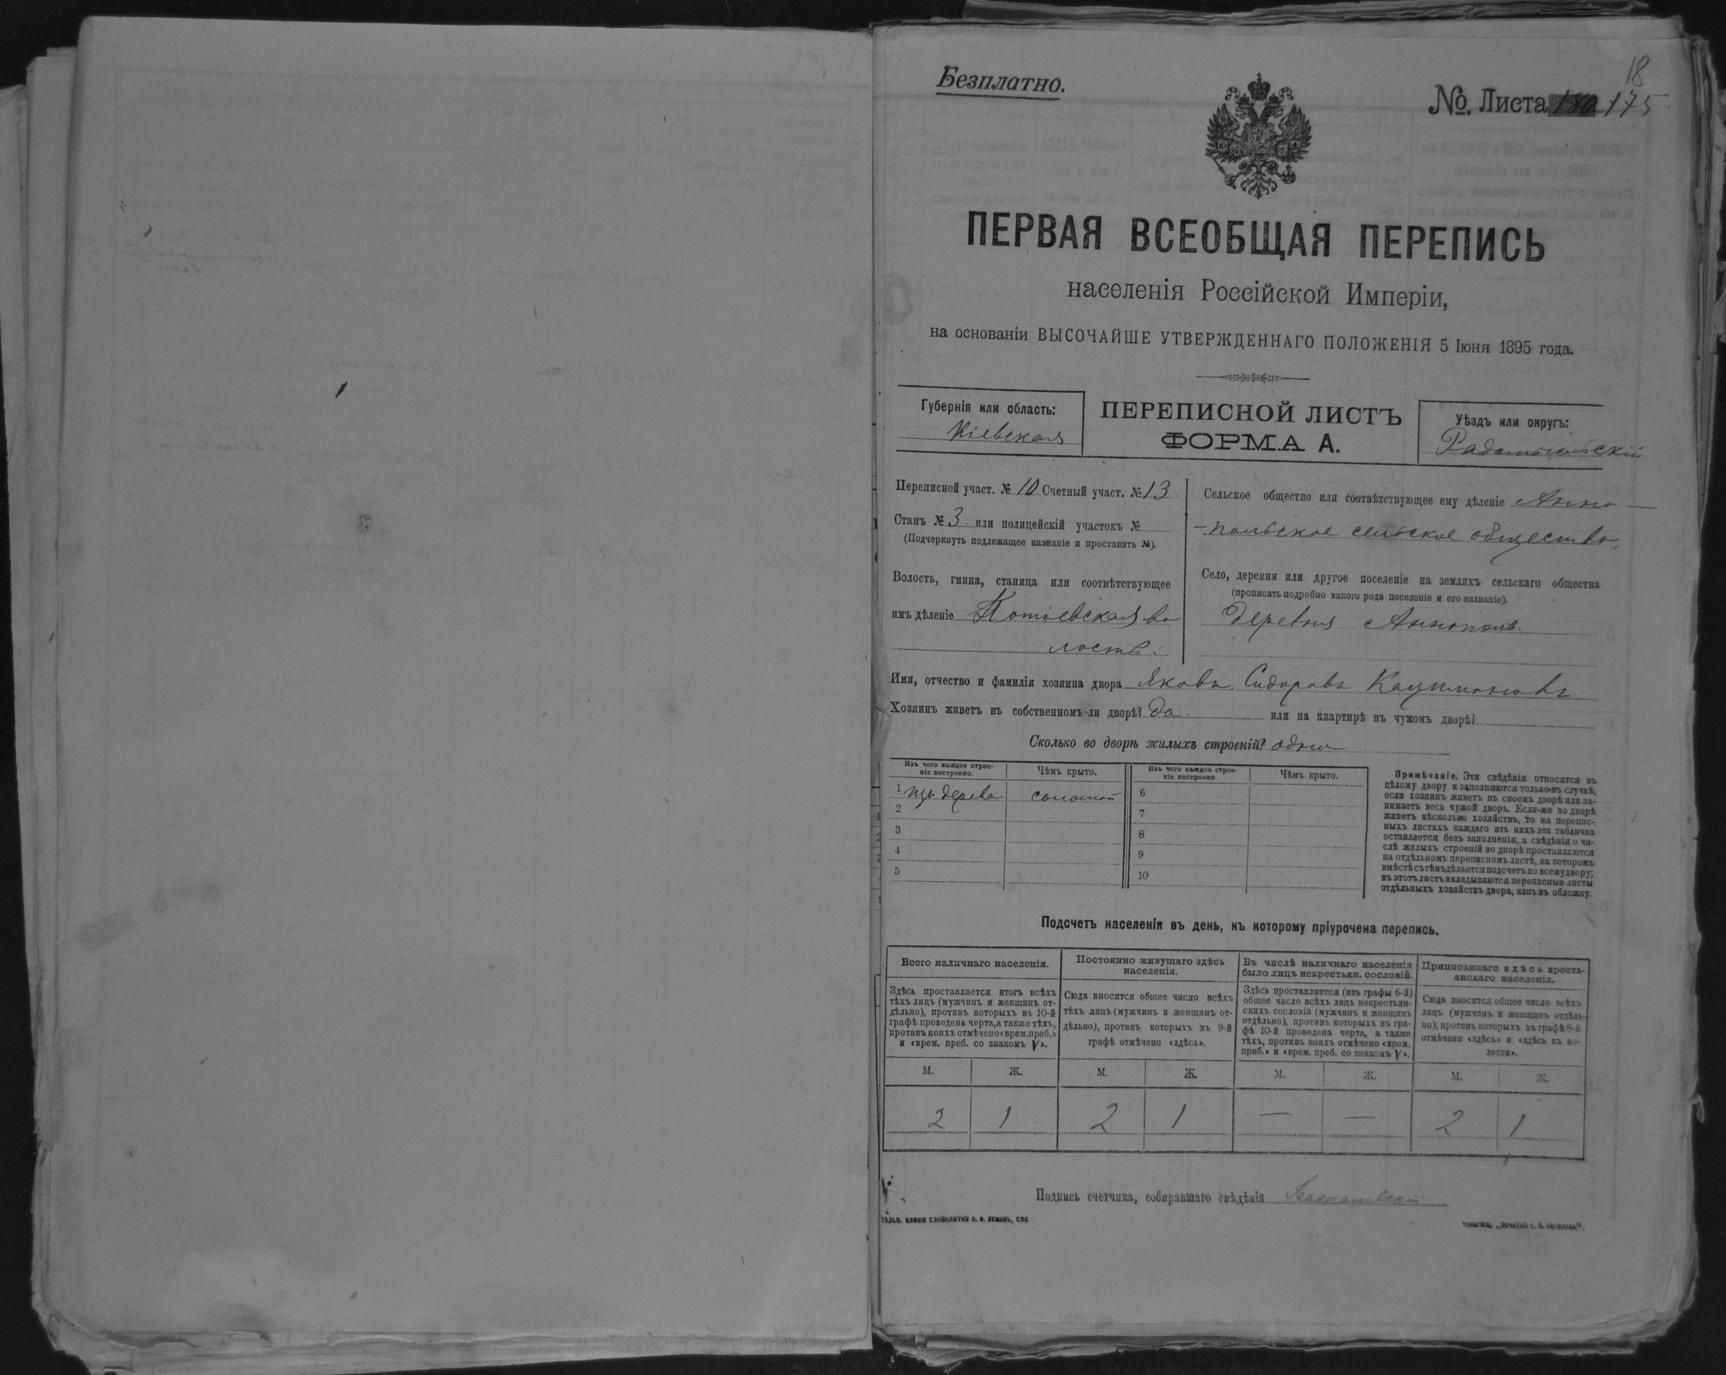 Безплатно.
18
№. Листа 180 175
ПЕРВАЯ ВСЕОБЩАЯ ПЕРЕПИСЬ
населенія Россійской Имперіи,
на основаніи ВЫСОЧАЙШЕ УТВЕРЖДЕННАГО ПОЛОЖЕНІЯ 5 Іюня 1895 года.
Губернія или область:
Кіевская
ПЕРЕПИСНОЙ ЛИСТЪ
ФОРМА А.
Уѣздъ или округъ:
Радомысльскій
Переписной участ. № 10 Счетный участ. № 13
Станъ № 3 или полицейскій участокъ №
(Подчеркнуть подлежащее названіе и проставить №).
Волость, гмина, станица или соотвѣтствующее
имъ дѣленіе Потіевская во
лость.
Сельское общество или соотвѣтствующее ему дѣленіе Анно-
-польское сельское общество.
Село, деревня или другое поселеніе на земляхъ сельскаго общества
(прописать подробно какого рода поселеніе и его названіе).
деревня Аннополь.
Имя, отчество и фамилія хозяина двора Яковъ Сидоровъ
Хозяинъ живетъ въ собственномъ-ли дворѣ? Да. или на квартирѣ въ чужомъ дворѣ?
Сколько во дворѣ жилыхъ строеній? одно
Изъ чего каждое строе-
ніе построено.
Чѣмъ крыто.
Изъ чего каждое строе-
ніе построено.
Чѣмъ крыто.
1 изъ дерева соломой
2
3
4
5
6
7
8
9
10
Примѣчаніе. Эти свѣдѣнія относятся къ
цѣлому двору и заполняются только въ случаѣ,
если хозяинъ живетъ въ своемъ дворѣ или за-
нимаетъ весь чужой дворъ. Если-же во дворѣ
живетъ нѣсколько хозяйствъ, то на перепис-
ныхъ листахъ каждаго изъ нихъ эта табличка
оставляется безъ заполненія, а свѣдѣнія о чи-
слѣ жилыхъ строеній во дворѣ проставляются
на отдѣльномъ переписномъ листѣ, на которомъ
вмѣстѣ съ тѣмъ дѣлается подсчетъ по всему двору;
въ этотъ листъ вкладываются переписные листы
отдѣльныхъ хозяйствъ двора, какъ въ обложку.
Подсчетъ населенія въ день, къ которому пріурочена перепись.
Всего наличнаго населенія.
Здѣсь проставляется итогъ всѣхъ
тѣхъ лицъ (мужчинъ и женщинъ от-
дѣльно), противъ которыхъ въ 10-й
графѣ проведена черта, а также тѣхъ,
противъ коихъ отмѣчено «врем. преб.»
и «врем. преб. со знакомъ V».
Постоянно живущаго здѣсь
населенія.
Сюда вносится общее число всѣхъ
тѣхъ лицъ (мужчинъ и женщинъ от-
дѣльно), противъ которыхъ въ 9-й
графѣ отмѣчено «здѣсь».
Въ числѣ наличнаго населенія
было лицъ некрестьян. сословій.
Здѣсь проставляется (изъ графы 6-й)
общее число всѣхъ лицъ некрестьян-
скихъ сословій (мужчинъ и женщинъ
отдѣльно), противъ которыхъ въ гра-
фѣ 10-й проведена черта, а также
тѣхъ, противъ коихъ отмѣчено «врем.
преб.» и «врем. преб. со знакомъ V».
Приписаннаго здѣсь кресть-
янскаго населенія.
Сюда вносится общее число всѣхъ
лицъ (мужчинъ и женщинъ отдѣль-
но), противъ которыхъ въ графѣ 8-й
отмѣчено «здѣсь» и «здѣсь къ во-
лости».
М. Ж. М. Ж. М. Ж. М. Ж.
2 1 2 1 — — 2 1
Подпись счетчика, собиравшаго свѣдѣнія